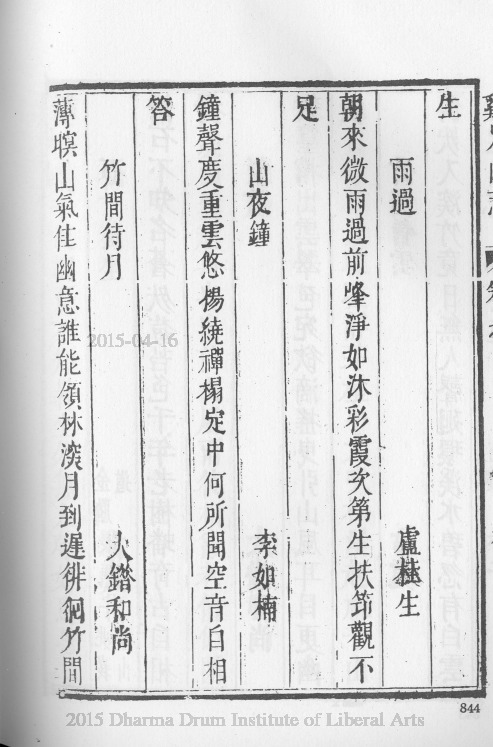 生
雨過
盧桂生
朝來微雨過前峰淨如沐彩霞次第生扶筇觀不
足
山夜鐘
李如楠
鐘聲度重雲悠揚繞禪榻定中何所聞空音自相
答
竹間待月
大錯和尚
薄暝山氣佳幽意誰能領林深月到遲徘徊竹間
2015-04-16
844
2015 Dharma Drum Institute of Liberal Arts